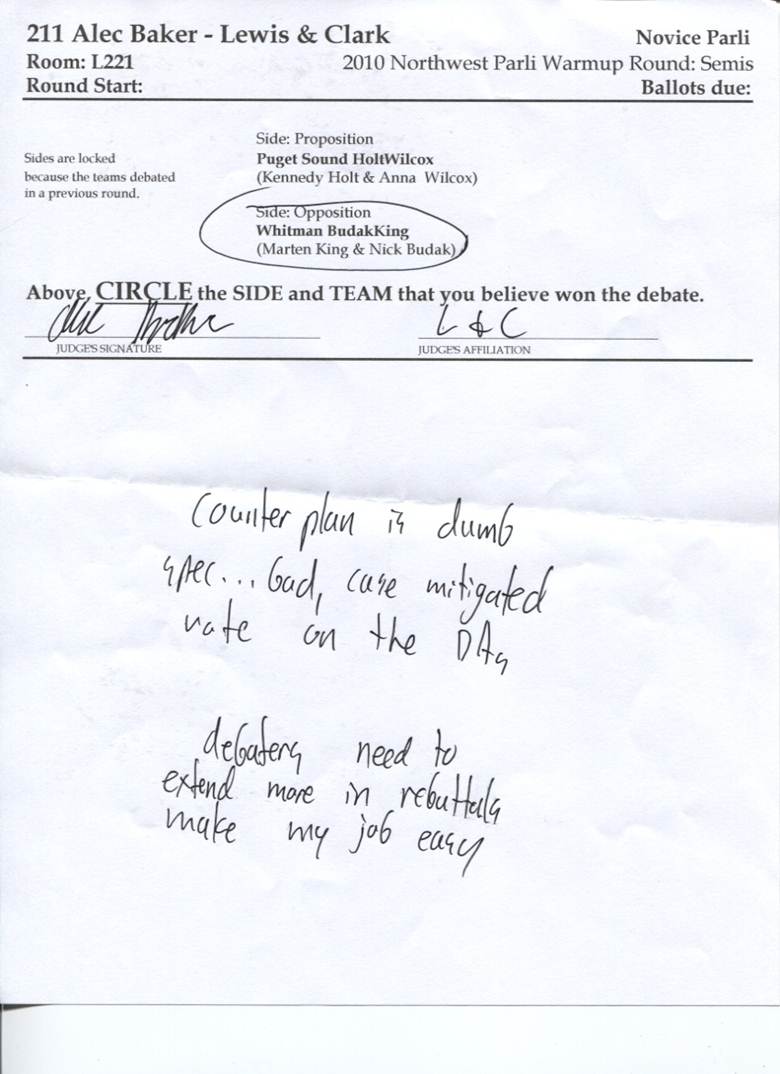 211 Alec Baker - Lewis & Clark
Novice Parli
Room: L221
2010 Northwest Parli Warmup Round: Semis
Round Start:
Ballots due:
Sides are locked
because the teams debated
in a previous round.
Side: Proposition
Puget Sound HoltWilcox
(Kennedy Holt & Anna Wilcox)
Side: Opposition
Whitman BudakKing
(Marten King & Nick Budak)
Above, CIRCLE the SIDE and TEAM that you believe won the debate.
Alec Baker
L & C
JUDGE'S SIGNATURE
JUDGE'S AFFILIATION
Counter plan is dumb
spec... bad, case mitigated
vote on the DAs
debaters need to
extend more in rebuttals
make my job easy